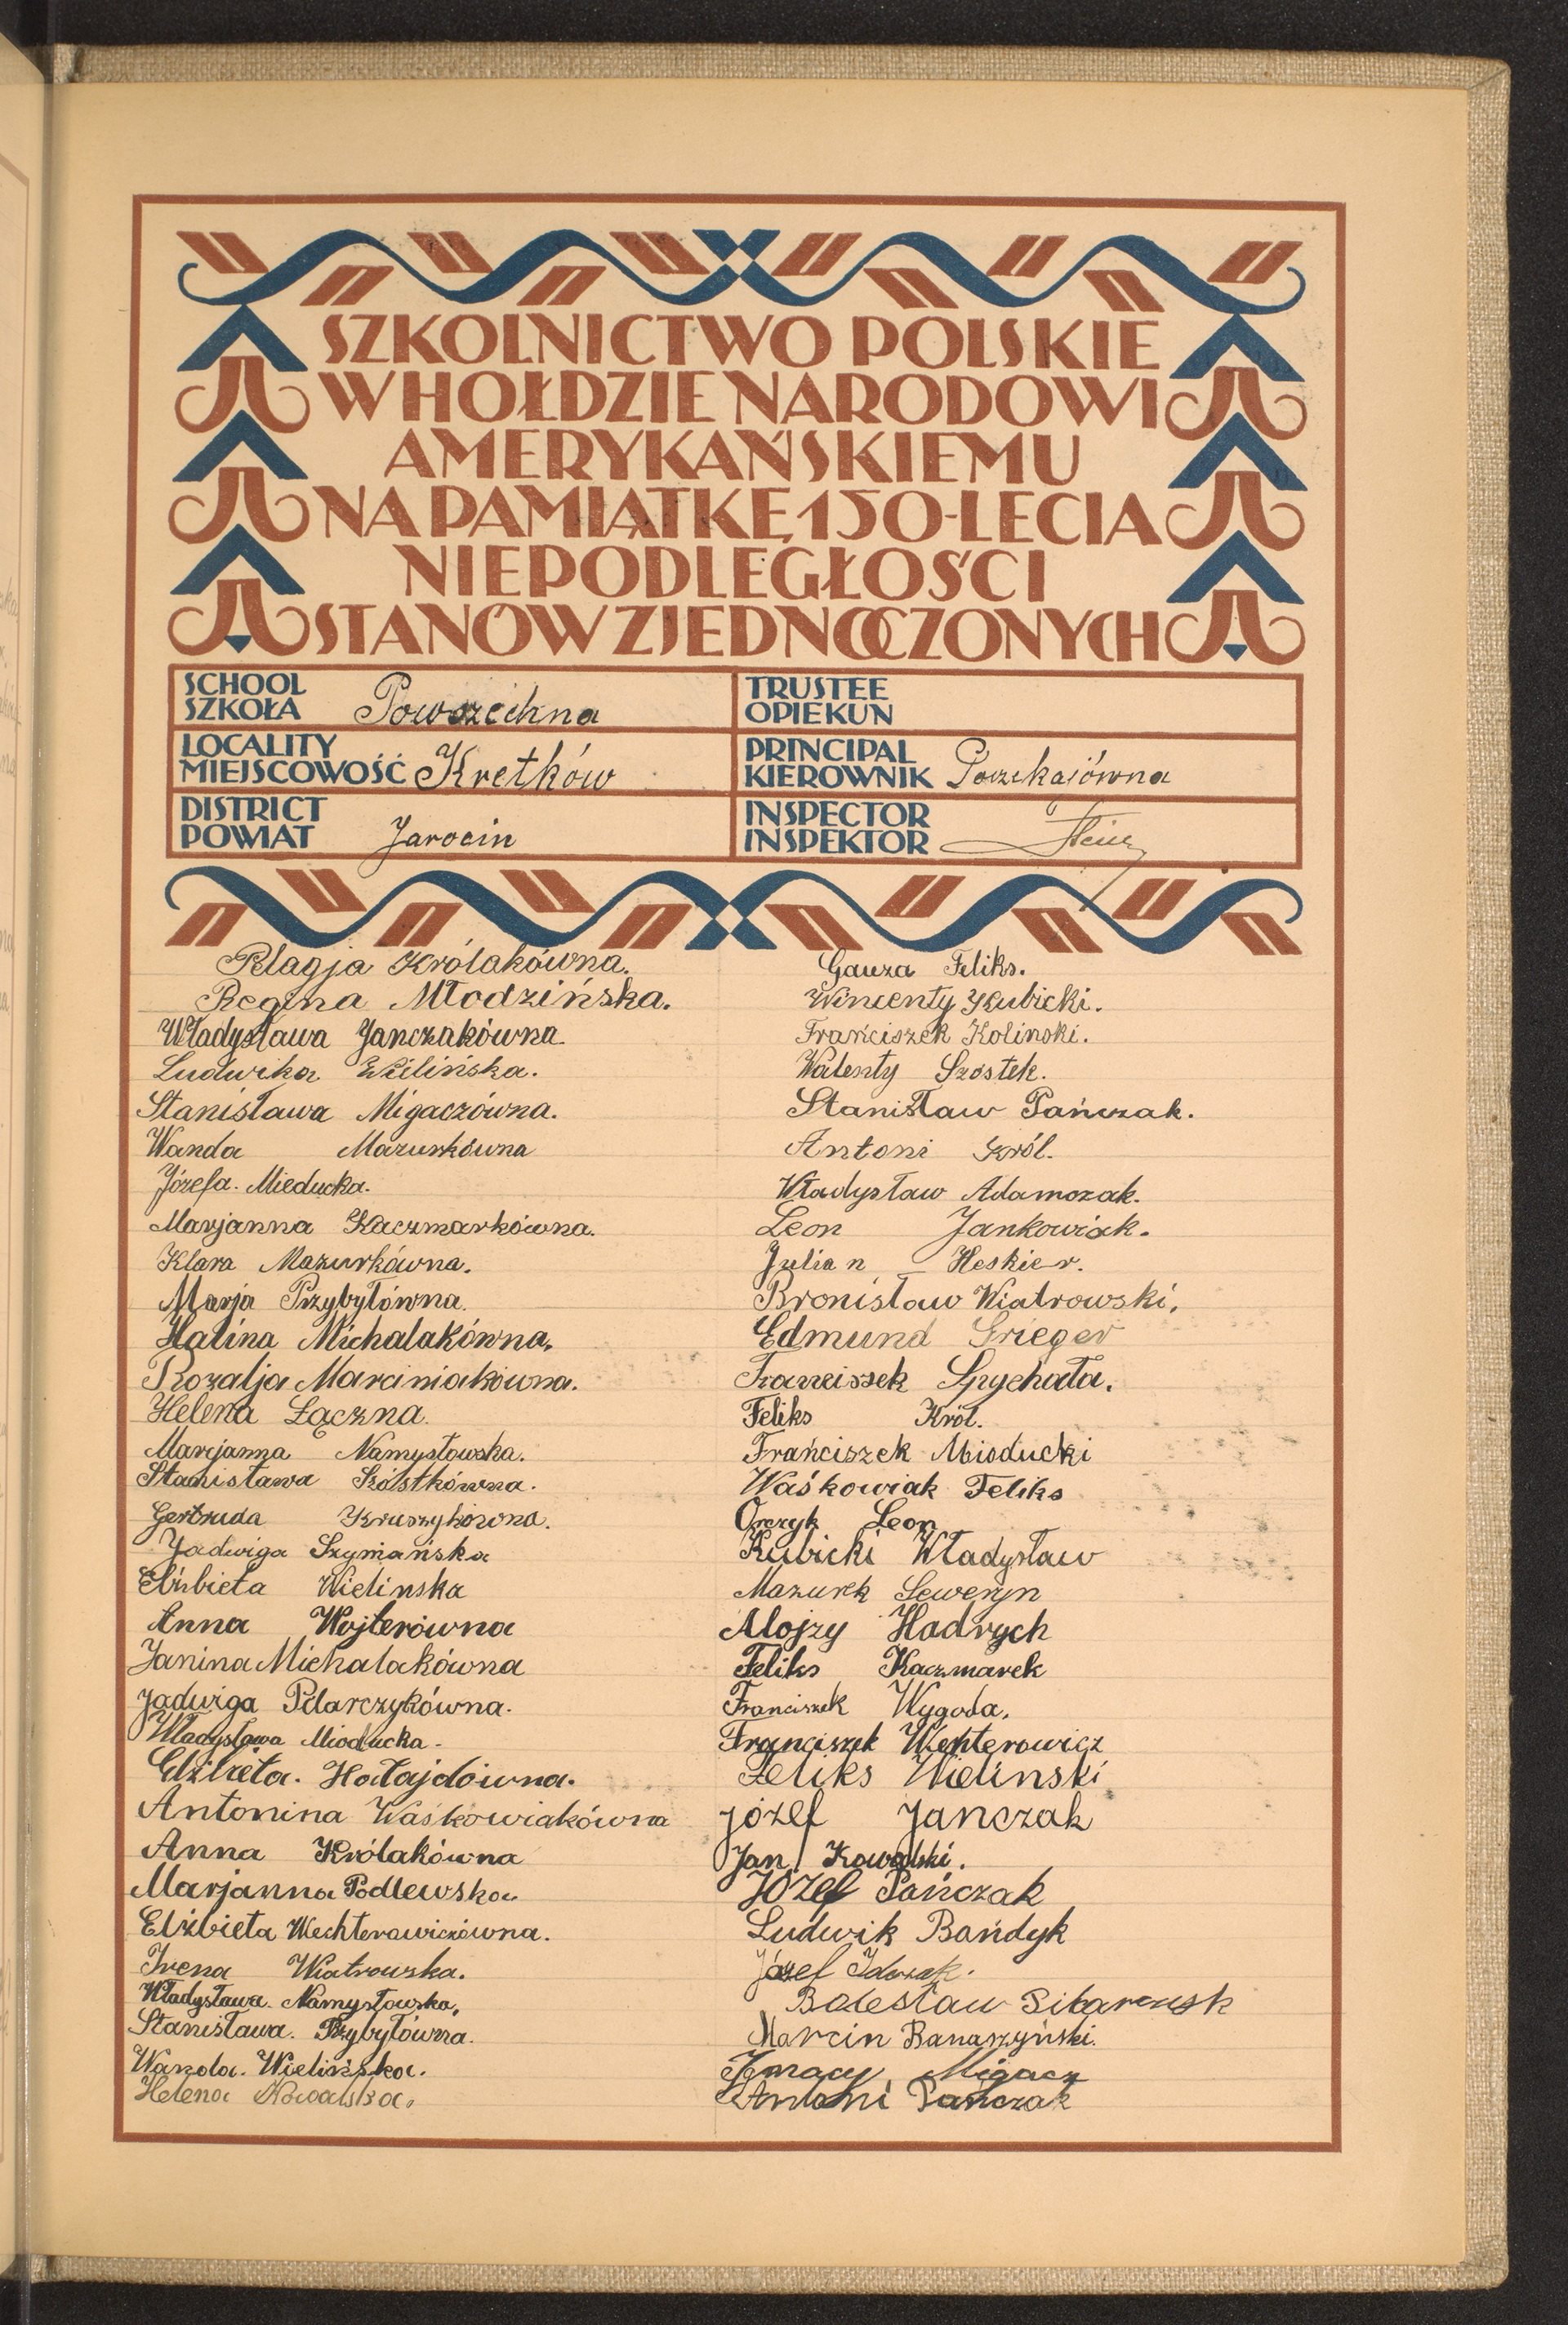 SZKOLNICTWO POLSKIE
W HOŁDZIE NARODOWI
AMERYKAŃSKIEMU
NA PAMIĄTKĘ 150-LECIA
NIEPODLEGŁOŚCI
STANÓW ZJEDNOCZONYCH
SCHOOL
SZKOŁA Powszechna
TRUSTEE
OPIEKUN
LOCALITY
MIEJSCOWOŚĆ Kretków
PRINCIPAL
KIEROWNIK
DISTRICT
POWIAT Jarocin
INSPECTOR
INSPEKTOR
Pelagja Królakówna.
Regina Młodzińska.
Władysława Janczakówna.
Ludwika Wilińska.
Stanisława Migaczówna.
Wanda Mazurkówna
Józefa. Mieducka.
Marjanna Kaczmarkówna.
Klara Mazurkówna.
Marja Przybyłówna.
Halina Michalakówna.
Rozalja Marciniakówna.
Helena Łączna.
Marjanna Namysłowska.
Stanisława Szóstkówna.
Gertruda Kruszykówna.
Jadwiga Szymańska
Elżbieta Wielinska
Anna Wojterówna
Janina Michalakówna
Jadwiga Pilarczykówna.
Władysława Mioducka.
Elżbieta. Hałajdówna.
Antonina Waśkowiakówna
Anna Królakówna
Marjanna Podlewska
Elżbieta Wechterowiczówna.
Irena Wiatrowska.
Władysława Namysłowska.
Stanisława. Przybyłówna.
Wanda. Wielińska.
Helena Kowalska.
Gauza Feliks.
Wincenty Kubicki.
Franciszek Kolinski.
Walenty Szóstek.
Stanisław Pańczak.
Antoni Król.
Władysław Adamczak.
Leon Jankowiak.
Julian Heskier.
Bronisław Wiatrowski.
Edmund Grieger
Franciszek Spychała.
Feliks Król.
Frańciszek Mioducki
Waśkowiak Feliks
Orczyk Leon
Kubicki Władysław
Mazurek Seweryn
Alojzy Hadrych
Feliks Kaczmarek
Franciszek Wygoda.
Franciszek Wechterowicz
Feliks Wielinski
Józef Janczak
Jan Kowalski.
Józef Pańczak
Ludwik Bańdyk
Józef
Bolesław
Marcin Banaszyński.
Ignacy Migacz
Antoni Pańczak